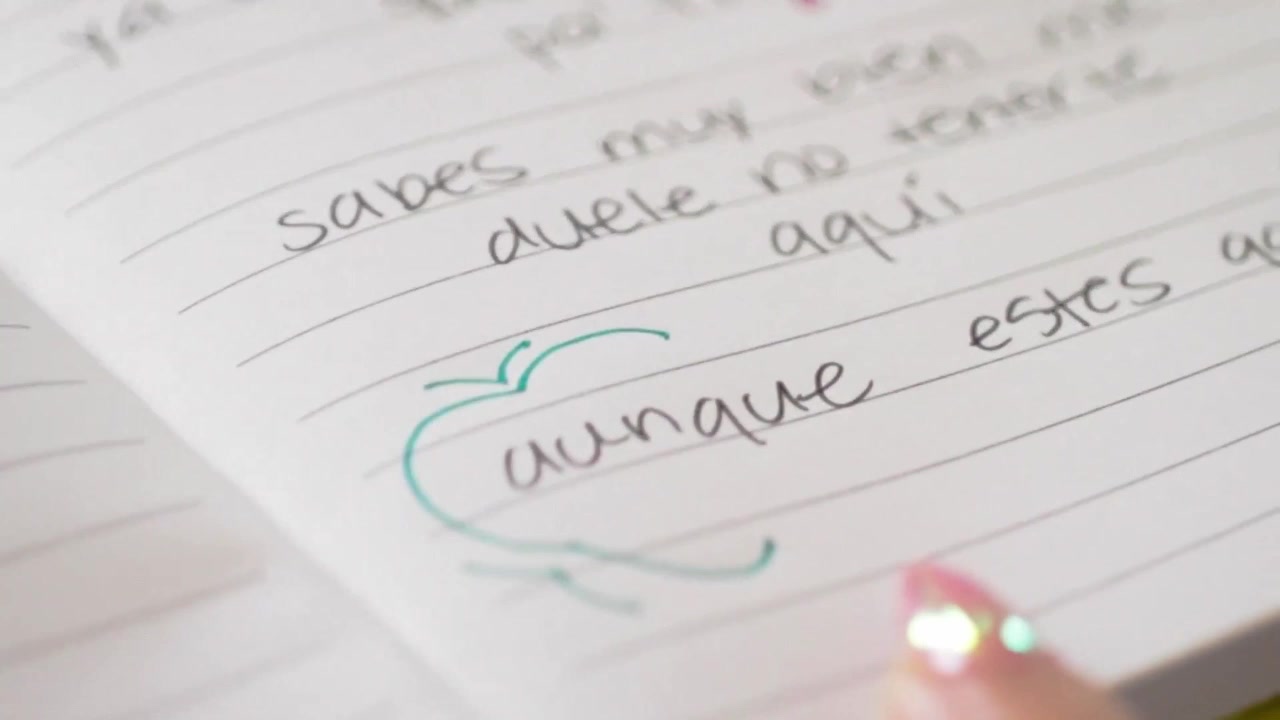 por
sabes muy bien me
duele no tenerte
aquí
aunque estes